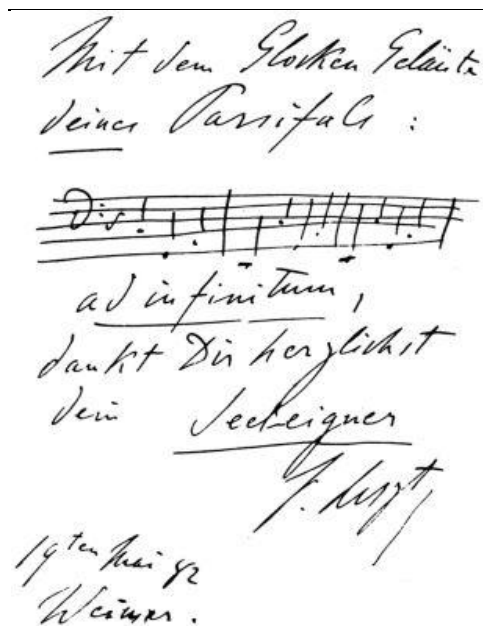 Mit dem Glocken Geläute
deines Parsifals :
ad infinitum,
dankt Dir herzlichst
dein Seeleigner
F. Liszt,
19ten Mai 82
Weimar.